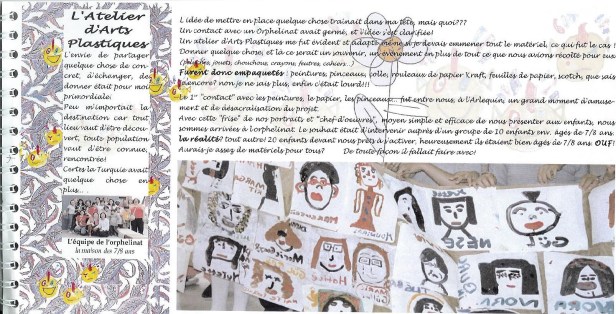 L'Atelier
d'Arts
Plastiques
L'envie de partager
quelque chose de con-
cret, d'échanger, de
donner était pour moi
primordiale.
Peu m'importait la
destination car tout
lieu vaut d'être décou-
vert, toute population
vaut d'être connue,
rencontrée!
Certes la Turquie avait
quelque chose en
plus...
L'équipe de l'orphelinat
la maison des 7/8 ans
L idée de mettre en place quelque chose trainait dans ma tête, mais quoi???
Un contact avec un Orphelinat avait germé, et l'idée s'est clarifiée!
Un atelier d'Arts Plastiques me fut évident et adapté même si je devais emmener tout le matériel, ce qui fut le cas !
Donner quelque chose, et là ce serait un souvenir, un évènement en plus de tout ce que nous avions récolté pour eux
jouets, chouchous, crayons, feutres, cahiers...)
Furent donc empaquetés : peintures, pinceaux, colle, rouleaux de papier Kraft, feuilles de papier, scotch, que sais-
encore? non je ne sais plus; enfin c'était lourd!!!
Le 1er "contact" avec les peintures, le papier, les pinceaux... fut entre nous, à l'Arlequin, un grand moment d'amuse-
ment et de désacralisation du projet.
Avec cette "frise" de nos portraits et "chef d'oeuvres", moyen simple et efficace de nous présenter aux enfants, nous
sommes arrivées à l'orphelinat. Le souhait était d'intervenir auprès d'un groupe de 10 enfants env. âgés de 7/8 ans
la réalité? tout autre! 20 enfants devant nous prêts à s'activer, heureusement ils étaient bien âgés de 7/8 ans. OUF!
Aurais-je assez de matériels pour tous? De toute façon il fallait faire avec!
NESE
NORA
NORA